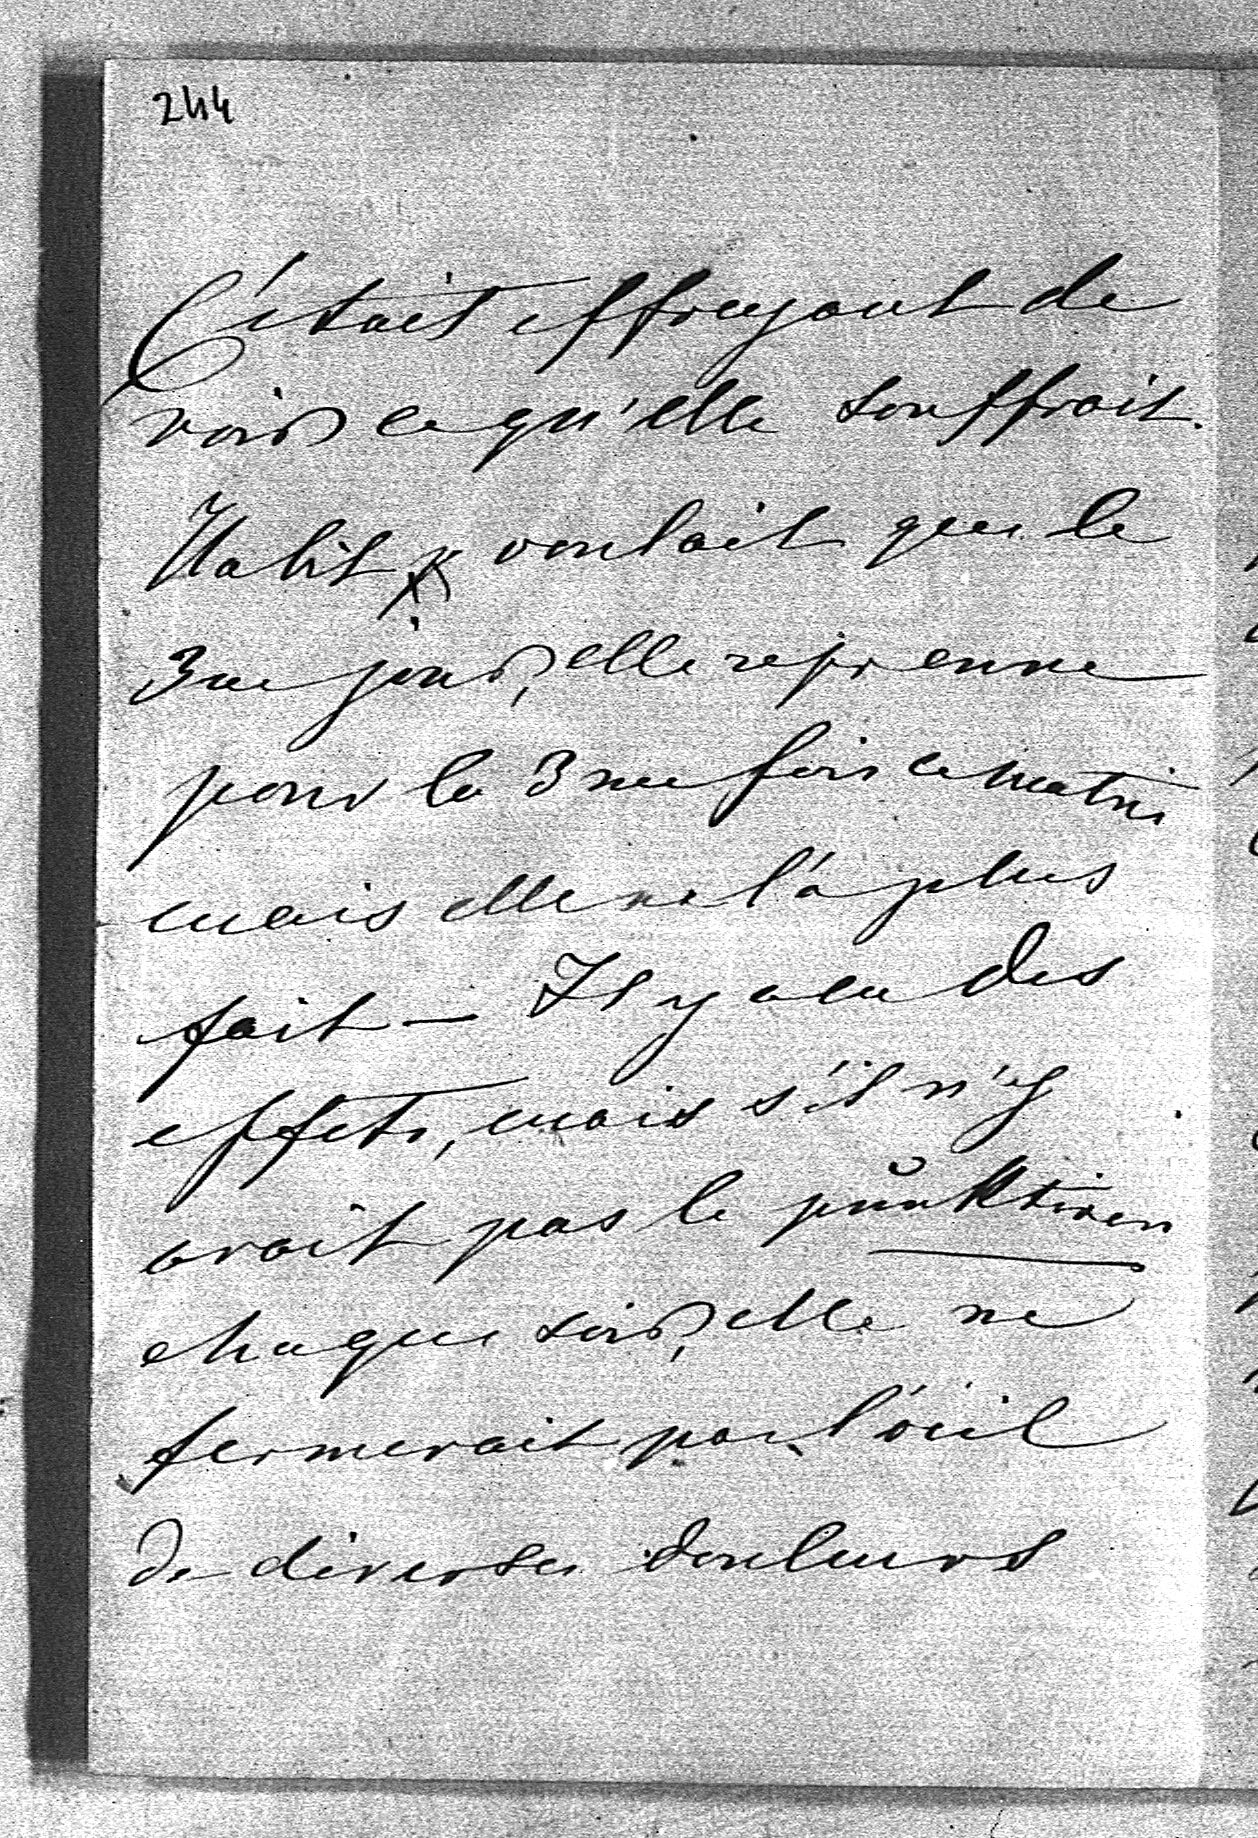 244
C'était effrayant de
voir ce qu'elle souffrait.
Habit voulait que le
3me jour, elle reprenne
pour la 3me fois ce matin
mais elle ne l'a plus
fait — Il y a eu des
effets, mais s'il n'y
avait pas le pŭnktiren
chaque soir, elle ne
fermerait pas l'oeil
de diverses douleurs